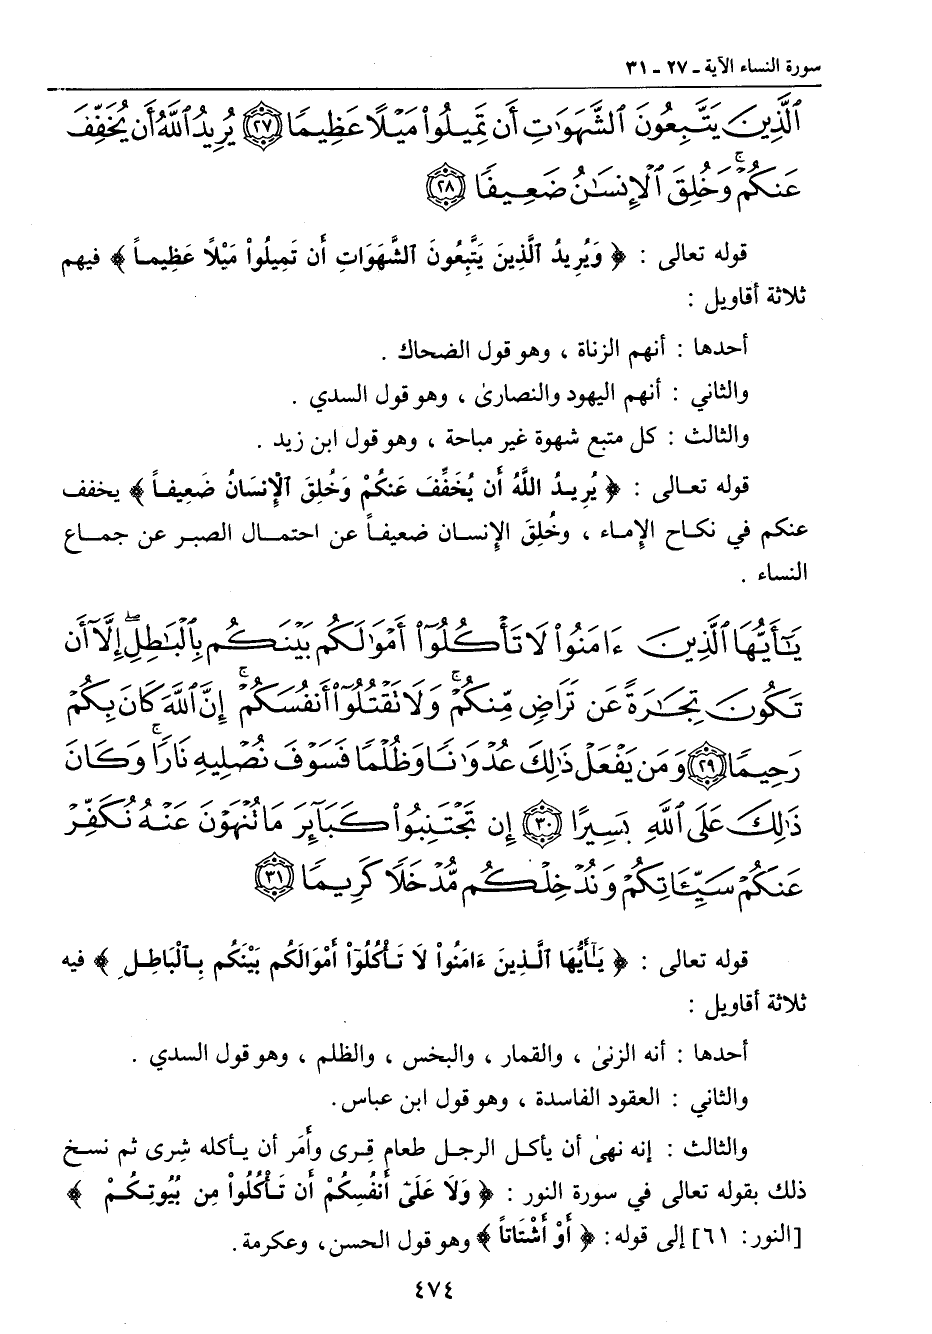 سورة النساء الآية ـ ٢٧ ـ ٣١
ٱلَّذِينَ يَتَّبِعُونَ ٱلشَّهَوَٰتِ أَن تَمِيلُوا۟ مَيْلًا عَظِيمًا ٢٧ يُرِيدُ ٱللَّهُ أَن يُخَفِّفَ
عَنكُمْ ۚ وَخُلِقَ ٱلْإِنسَٰنُ ضَعِيفًا ٢٨
قوله تعالى : ﴿ وَيُرِيدُ ٱلَّذِينَ يَتَّبِعُونَ ٱلشَّهَوَاتِ أَن تَمِيلُواْ مَيْلاً عَظِيماً ﴾ فيهم
ثلاثة أقاويل :
أحدها : أنهم الزناة ، وهو قول الضحاك .
والثاني : أنهم اليهود والنصارىٰ ، وهو قول السدي .
والثالث : كل متبع شهوة غير مباحة ، وهو قول ابن زيد .
قوله تعالى : ﴿ يُرِيدُ اللَّهُ أَن يُخَفِّفَ عَنكُمْ وَخُلِقَ ٱلْإِنْسَانُ ضَعِيفاً ﴾ يخفف
عنكم في نكاح الإماء ، وخُلِقَ الإنسان ضعيفاً عن احتمال الصبر عن جماع
النساء .
يَٰٓأَيُّهَا ٱلَّذِينَ ءَامَنُوا۟ لَا تَأْكُلُوٓا۟ أَمْوَٰلَكُم بَيْنَكُم بِٱلْبَٰطِلِ إِلَّآ أَن
تَكُونَ تِجَٰرَةً عَن تَرَاضٍ مِّنكُمْ ۚ وَلَا تَقْتُلُوٓا۟ أَنفُسَكُمْ ۚ إِنَّ ٱللَّهَ كَانَ بِكُمْ
رَحِيمًا ٢٩ وَمَن يَفْعَلْ ذَٰلِكَ عُدْوَٰنًا وَظُلْمًا فَسَوْفَ نُصْلِيهِ نَارًا ۚ وَكَانَ
ذَٰلِكَ عَلَى ٱللَّهِ يَسِيرًا ٣٠ إِن تَجْتَنِبُوا۟ كَبَآئِرَ مَا تُنْهَوْنَ عَنْهُ نُكَفِّرْ
عَنكُمْ سَيِّـَٔاتِكُمْ وَنُدْخِلْكُم مُّدْخَلًا كَرِيمًا ٣١
قوله تعالى : ﴿ يَـٰٓأَيُّهَا ٱلَّذِينَ ءَامَنُواْ لَا تَأْكُلُوٓاْ أَمْوَالَكُم بَيْنَكُم بِٱلْبَاطِلِ ﴾ فيه
ثلاثة أقاويل :
أحدها : أنه الزنىٰ ، والقمار ، والبخس ، والظلم ، وهو قول السدي .
والثاني : العقود الفاسدة ، وهو قول ابن عباس.
والثالث : إنه نهىٰ أن يأكل الرجل طعام قِرى وأُمَر أن يأكله شِرى ثم نسخ
ذلك بقوله تعالى في سورة النور : ﴿ وَلَا عَلَىٓ أَنفُسِكُمْ أَن تَأْكُلُواْ مِن بُيُوتِكُمْ ﴾
[النور: ٦١] إلى قوله: ﴿ أَوْ أَشْتَاتاً ﴾ وهو قول الحسن، وعكرمة.
٤٧٤